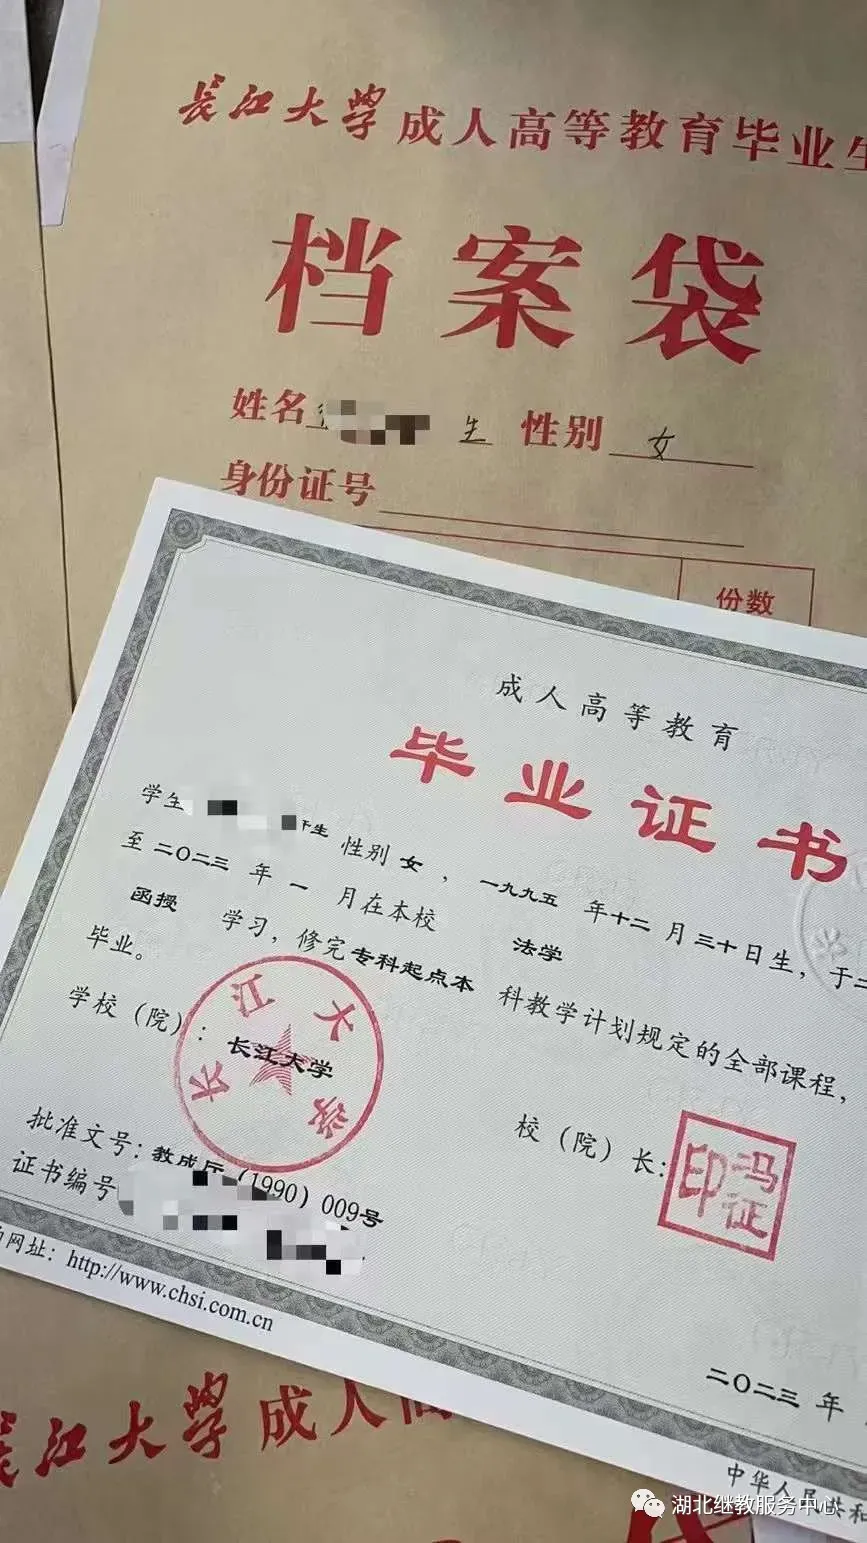 长江大学成人高等教育毕业生
档案袋
姓名 生 性别 女
身份证号
份数
成人高等教育
毕业证书
学生 生 性别 女，一九九五 年十二月三十日生，于二
至二〇二三年一月在本校 法学
函授 学习，修完专科起点本科教学计划规定的全部课程，
毕业。
学校（院）：长江大学
长江大学
校（院）长：
冯证印
批准文号：教成厅（1990）009号
证书编号
网址：http://www.chsi.com.cn
二〇二三年
中华人民共和
长江大学成人高
湖北继教服务中心